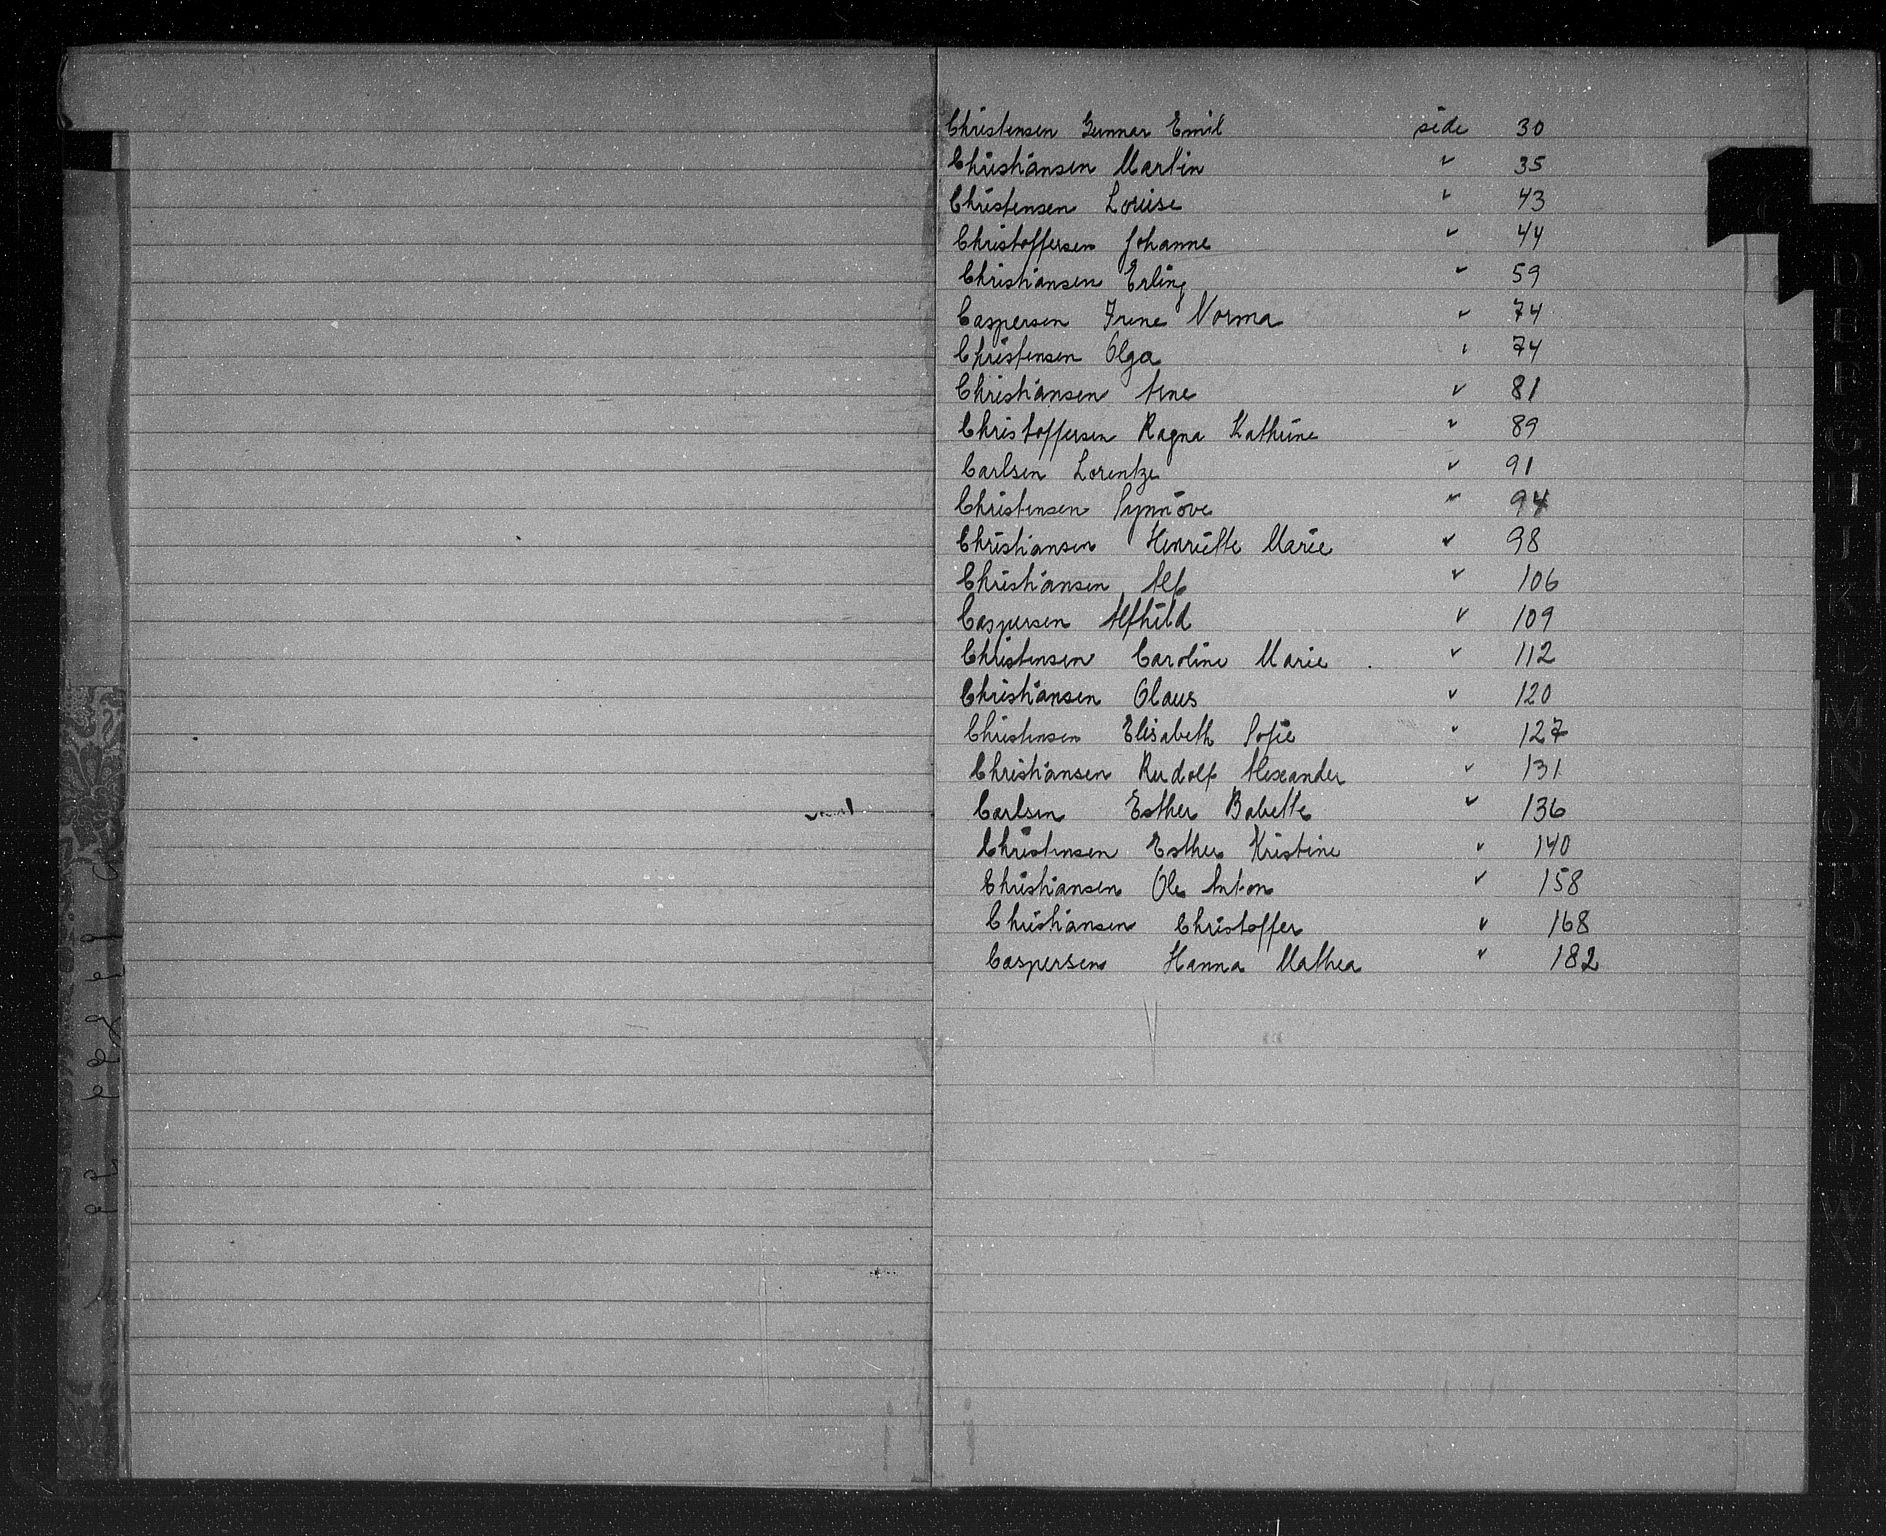 Christensen Gunnar Emil side 30
Christiansen Martin " 35
Christensen Louise " 43
Christoffersen Johanne " 44
Christiansen Erling " 59
Caspersen Irene Norma " 74
Christensen Olga " 74
Christiansen Arne " 81
Christoffersen Ragna Kathrine " 89
Carlsen Lorentze " 91
Christensen Synnöve " 94
Christiansen Henriette Marie " 98
Christiansen Alf " 106
Caspersen Alfhild " 109
Christensen Caroline Marie " 112
Christiansen Olaus " 120
Christensen Elisabeth Sofie " 127
Christiansen Rudolf Alexander " 131
Carlsen Esther Babette " 136
Christensen Esther Kristine " 140
Christiansen Ole Anton " 158
Christiansen Christoffer " 168
Caspersen Hanna Mathea " 182